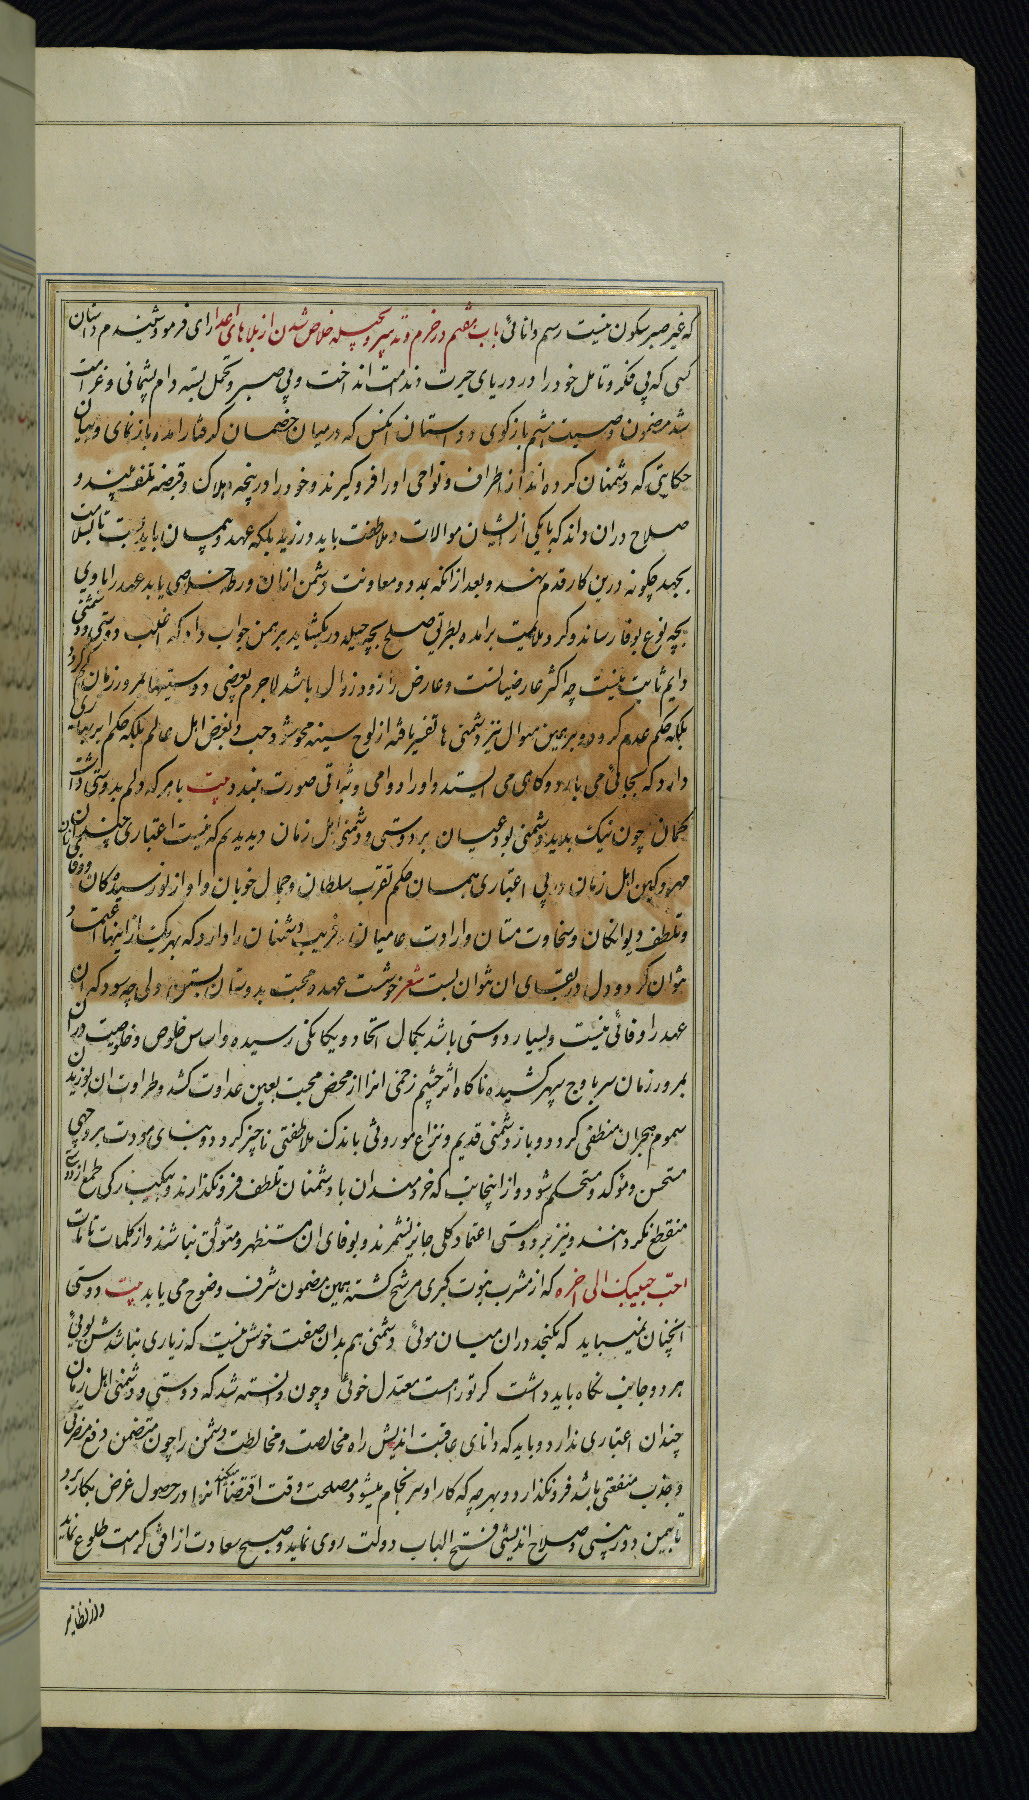 که غیر صبر سکون نیست رسم دانائی باب هفتم در حزم و تدبیر و بحیله خلاص شدن از بلاهای اعدا رای فرمود شنیدم داستان
کسی که بی فکر و تامل خود را در دریای حیرت و ندامت انداخت و بی صبر و تحمل بسته دام پشیمانی و غرامت
شد مضمون وصیت هشتم بازگوی و داستان آنکس که درمیان خصمان گرفتار آمده باز نمای و بیان
حکایتی که دشمنان کرده اند از اطراف و نواحی او را فرو گیرند و خود را در پنجه هلاک و قبضه تلف بیند و
صلاح دران داند که با یکی از ایشان موالات و ملاطفت باید ورزید بلکه عهد و پیمان باید بست تا بسلامت
بجهد چگونه درین کار قدم نهد و بعد از انکه بمدد و معاونت دشمن ازان ورطه خلاصی یابد عهد را با وی
بچه نوع بوفا رساند و گرد ملایمت برآمده بطریق صلح بچه حیله در بگشاید برهمن جواب داد که اغلب دوستی و دشمنی
دایم ثابت نیست چه اکثر عارضیاست و عارض را زود زوال باشد لاجرم بعضی دوستیها بمرور زمان کم گردد
بلکه حکم عدم گیرد و برهمین منوال نیز دشمنی ها تغییر یافته از لوح سینه محو شود و حب و بغض اهل عالم بلکه حکم ابر بهاری
دارد که بجائی می بارد و گاهی می ایستد و او را دوامی و ثباتی صورت نبندد بیت با هر که دلم بدوستی داشت
گمان چون نیک بدید دشمنی بود عیان بر دوستی و دشمنی اهل زمان دیدیم که نیست اعتباری چندان
مهر و کین اهل زمان در بی اعتباری همان حکم تقرب سلطان و جمال خوبان و آواز نورسیدگان و وفای زنان
و تلطف دیوانگان و سخاوت مستان و ارادت عامیان و فریب دشمنان را دارد که بهر یک از اینها اعتماد
نتوان کرد و دل در بقای آن نتوان بست شعر خوشست عهده محبت بدوستان بستن ولی چه سود که آن
عهد را وفائی نیست و بسیار دوستی باشد بکمال اتحاد و یگانگی رسیده و اساس خلوص و خصوصیت دران
بمرور زمان سر باوج سپهر کشیده ناگاه اثر چشم زخمی آنرا از محض محبت بعین عداوت کشد و طراوت آن بوزیدن
سموم هجران منطفی گردد و باز دشمنی قدیم و نزاع موروثی باندک ملاطفتی ناچیز گردد و بنای مودت بر وجهی
مستحسن و مؤکد و مستحکم شود و از اینجاست که خردمندان با دشمنان تلطف فرو نگذارند و بیکبارگی طمع از دوستی
منقطع نگردانند و نیز بر دوستی اعتماد کلی جایز نشمرند و بوفای آن مستظهر و متوثق نباشند و از کلمات تامات
احبب حبیبک الی آخره که از مشرب نبوت کبری مرشح گشته همین مضمون شرف وضوح می یابد بیت دوستی
آنچنان نمیباید که نگنجد دران میان موئی دشمنی هم بدان صفت خوش نیست که زیاری نباشدش بوئی
هر دو جانب نگاه باید داشت گر تو راهست معتدل خوئی و چون دانسته شد که دوستی و دشمنی اهل زمان
چندان اعتباری ندارد و باید که دانای عاقبت اندیش راه مخالصت و مخالطت دشمن را چون متضمن دفع مضرتی
و جذب منفعتی باشد فرو نگذارد و بهر چه که کار او سرانجام میشود مصلحت وقت اقتضا میکند آنرا در حصول غرض بکار برد
تا بیمن دوربینی و صلاح اندیشی فتح الباب دولت روی نماید و صبح سعادت از افق کرامت طلوع نماید
و از نظایر